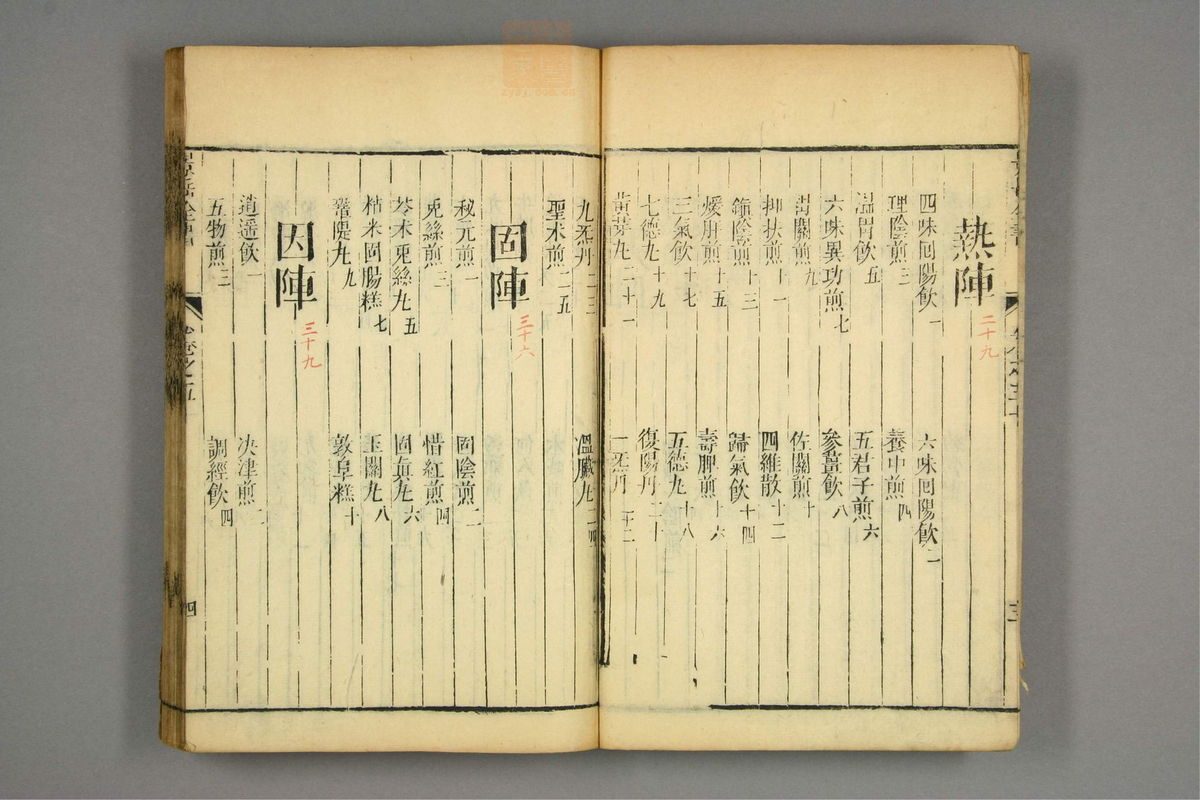 熱陣 二十九
四味囘陽飲一 六味囘陽飲二
理陰煎三 養中煎四
温胃飲五 五君子煎六
六味異功煎七 參薑飲八
胃關煎九 佐關煎十
抑扶煎十一 四維散十二
鎮陰煎十三 歸氣飲十四
煖肝煎十五 壽脾煎十六
三氣飲十七 五德丸十八
七德丸十九 復陽丹二十
黃芽丸二十一 一炁丹二十二
九炁丹二三 溫臟丸二四
聖术煎二五
固陣 三十六
秘元煎一 固陰煎二
兎絲煎三 惜紅煎四
苓术兎絲丸五 固眞丸六
粘米固腸糕七 玉關丸八
鞏隄丸九 敦阜糕十
因陣 三十九
逍遥飲一 决津煎二
五物煎三 調經飲四
景岳全書 四